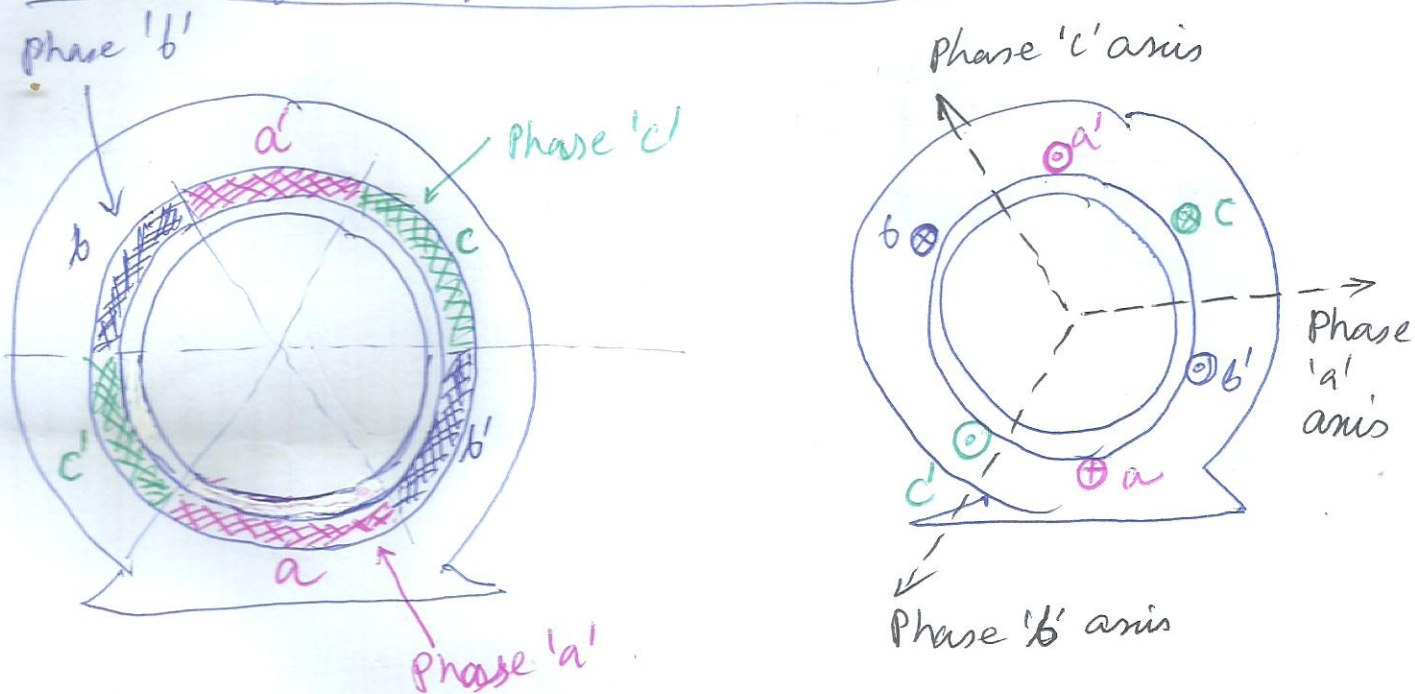 Phase 'b'
a'
Phase 'c'
b
c
c'
b'
a
Phase 'a'
Phase 'c' axis
a'
b
c
Phase
'a'
axis
b'
c'
a
Phase 'b' axis